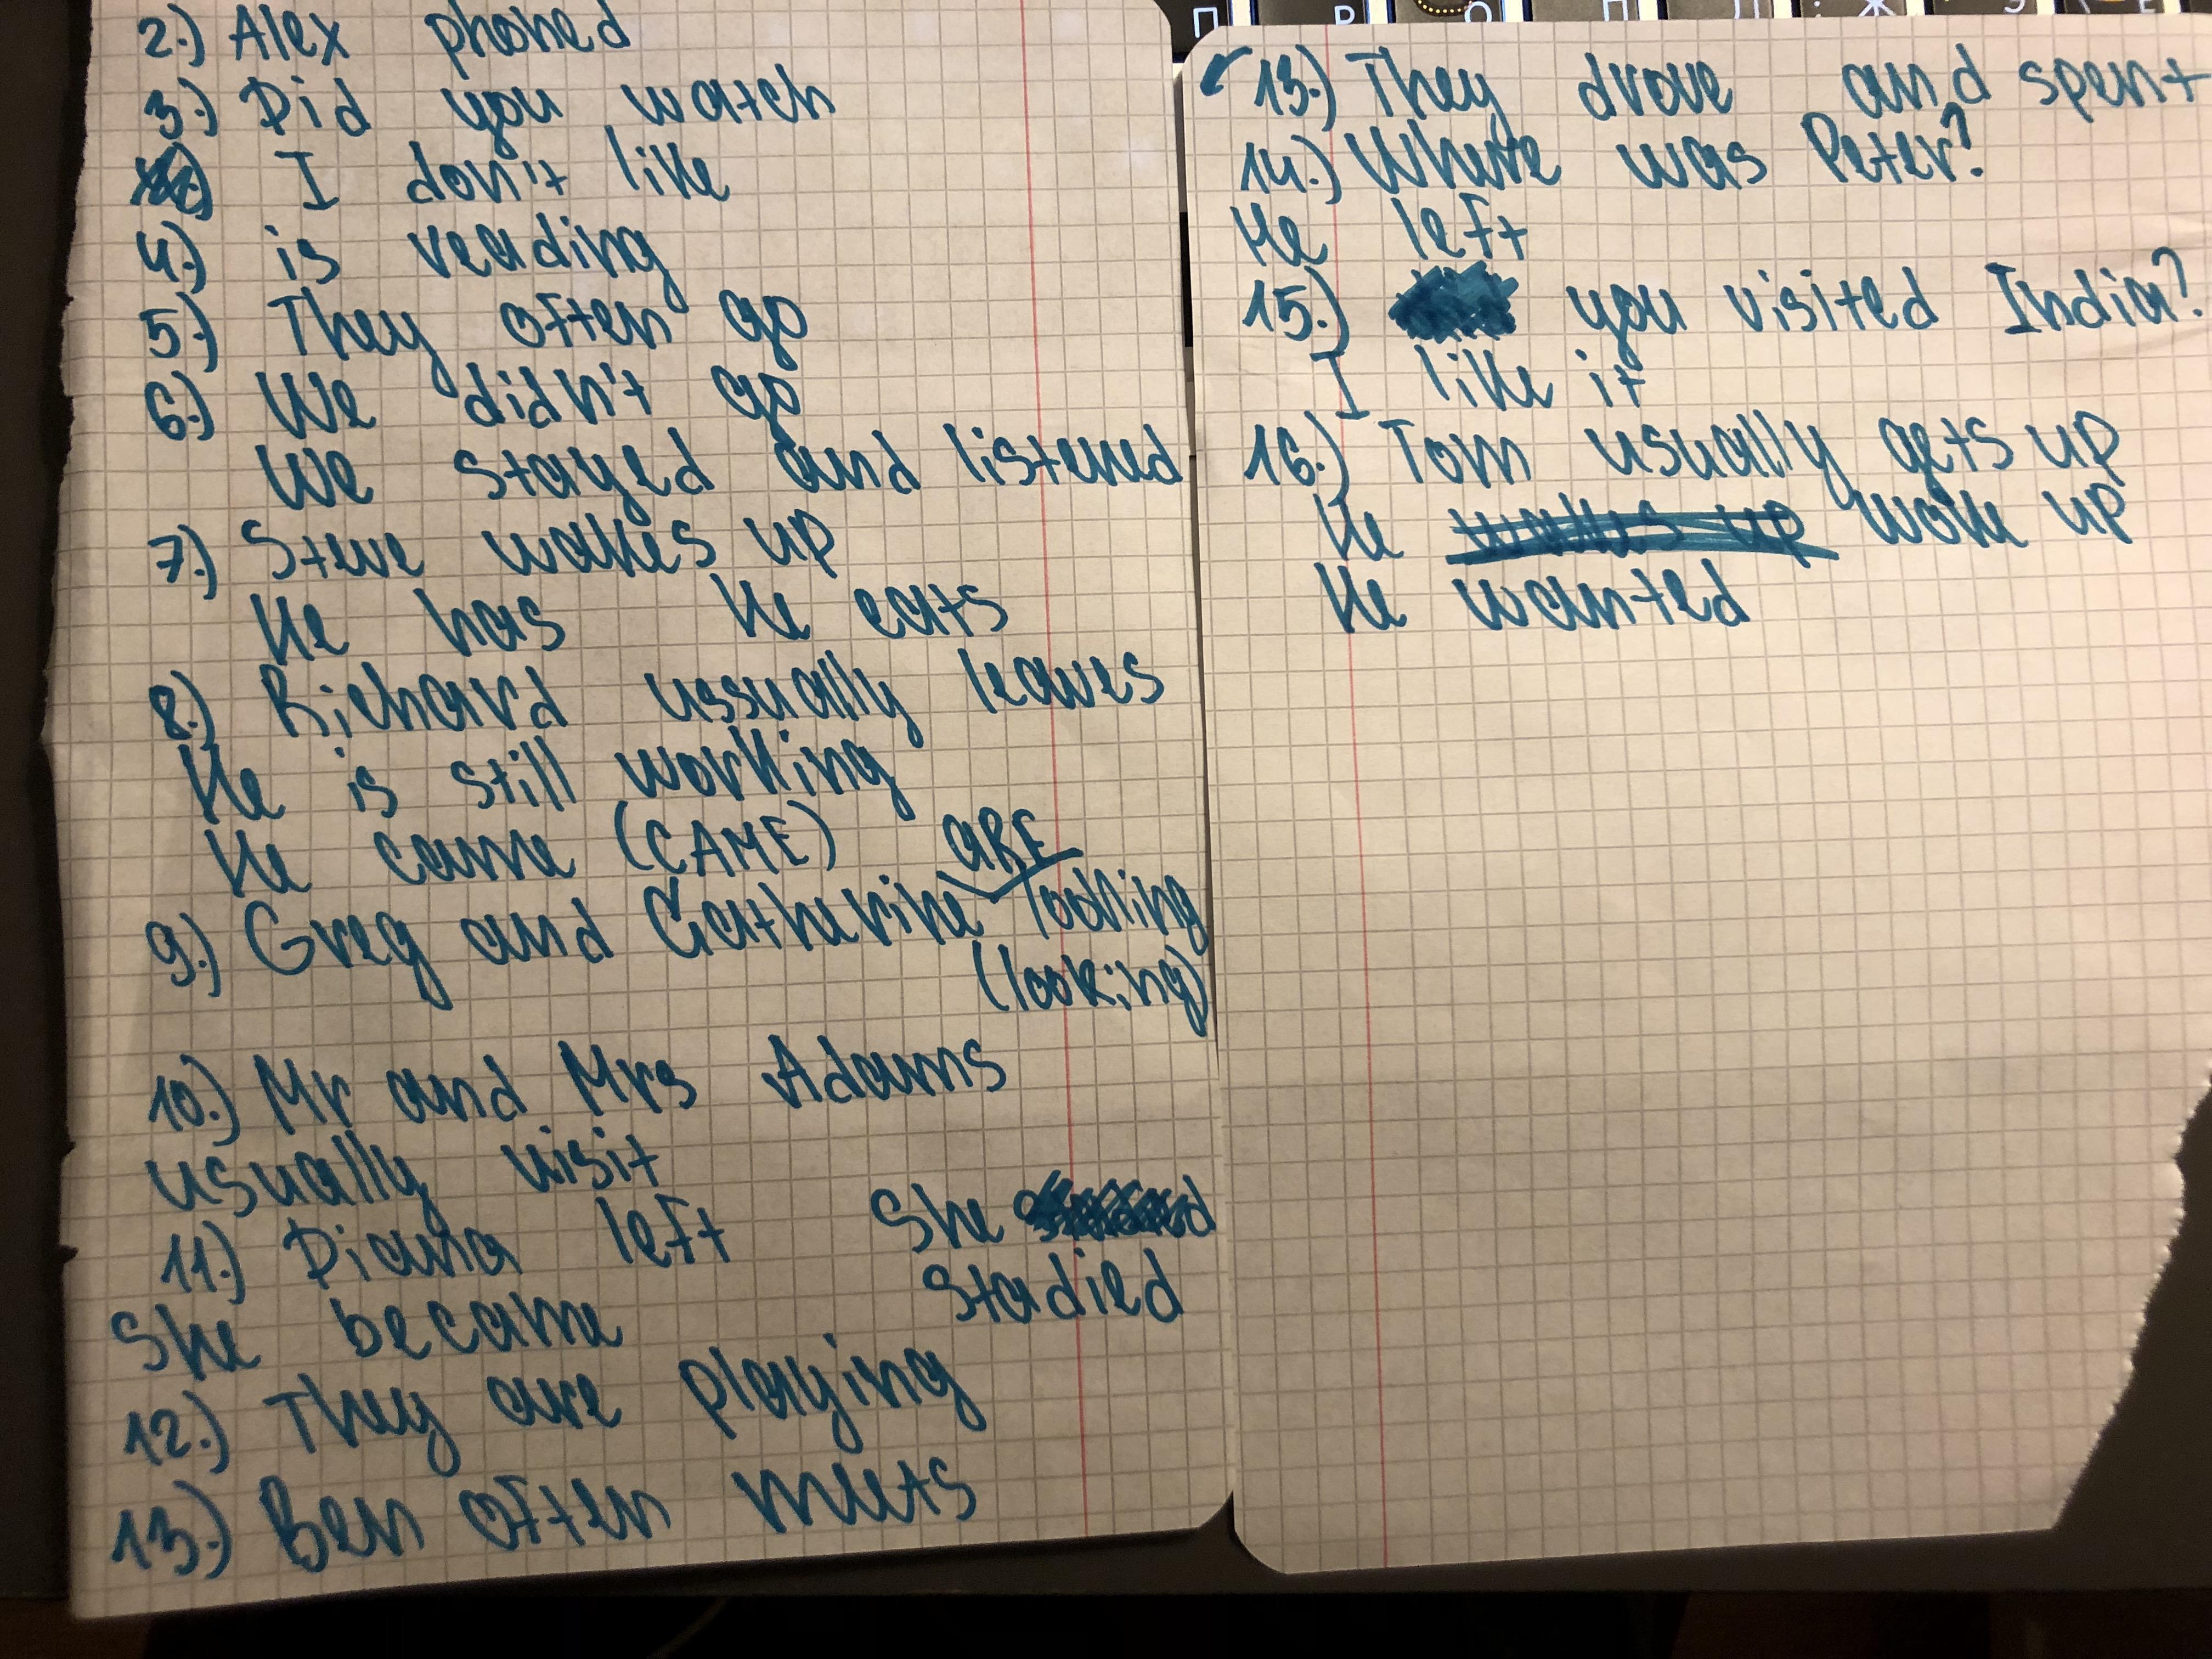 2.) Alex phoned
3.) Did you watch
I don't like
4.) is reading
5.) They often go
6.) We didn't go
We stayed and listened
7.) Steve wakes up
He has He eats
8.) Richard ussually leaves
He is still working
He came (CAME)
are
9.) Greg and Catherine looking
(looking)
10.) Mr and Mrs Adams
usually visit
11.) Diana left She
stadied
She became
12.) They are playing
13.) Ben often meets
13.) They drove and spent
14.) Where was Peter?
He left
15.) you visited India?
I like it
16.) Tom usually gets up
He wakes up woke up
He wanted